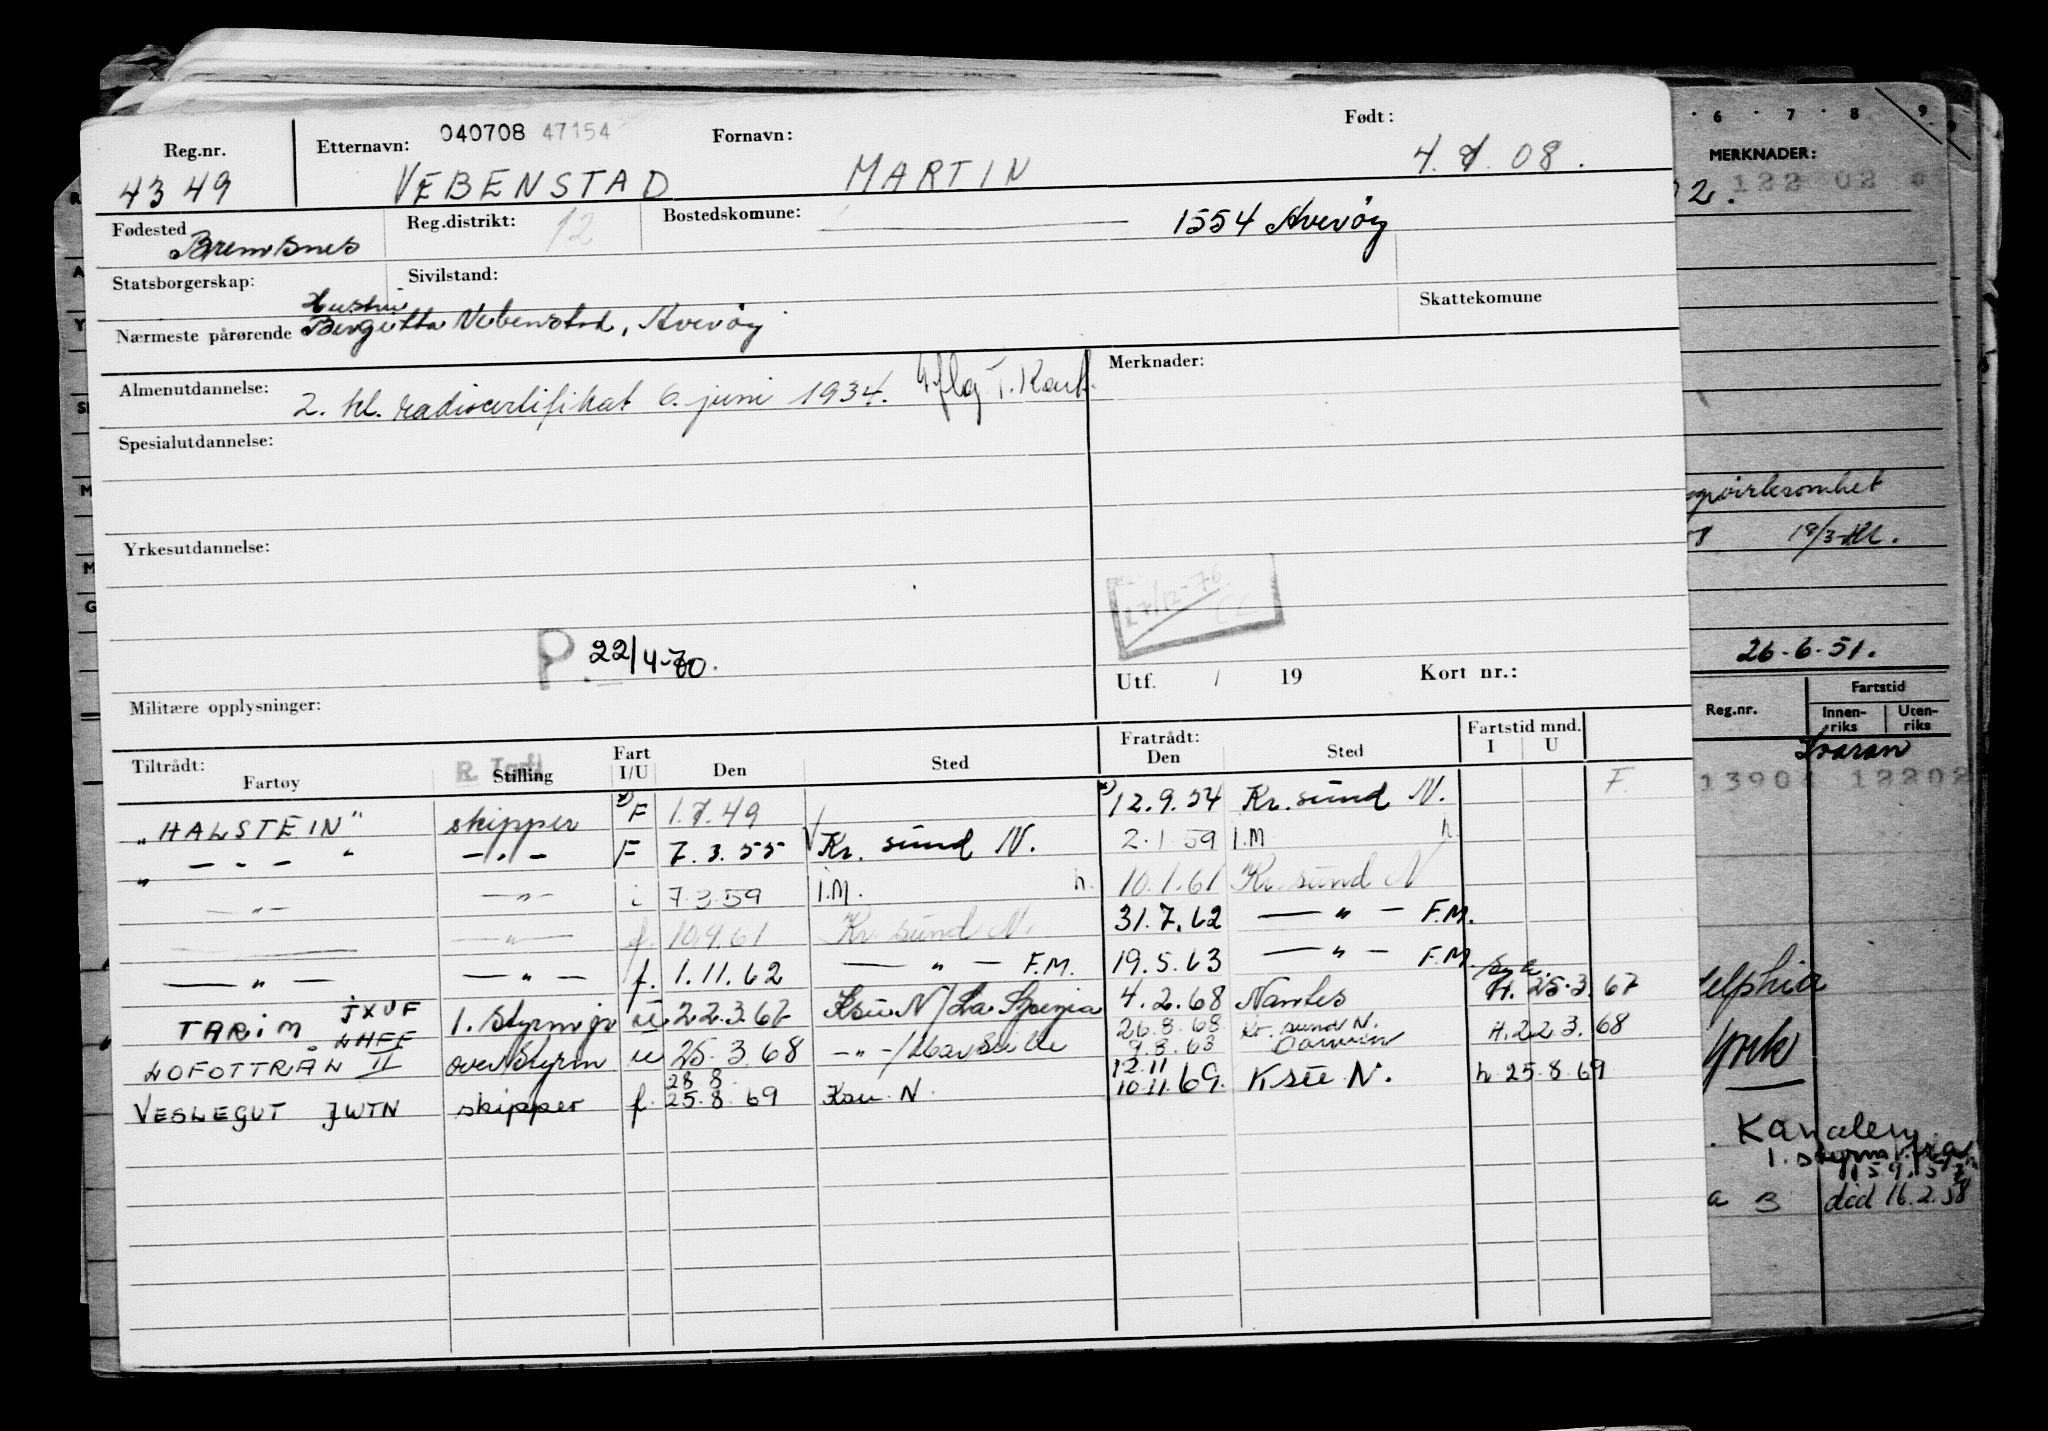 Reg.nr. Etternavn: 040708 47154 Fornavn: Født:
4349 VEBENSTAD MARTIN 4.7.08.
Fødested Bremsnes Reg.distrikt: 12 Bostedskomune: 1554 Averöy
Statsborgerskap: Sivilstand:
Hustru
Nærmeste pårørende Birgitta Vebenstad, Averöy Skattekomune
Almenutdannelse: 2. kl. radiocertifikat 6. juni 1934. Merknader:
Spesialutdannelse:
Yrkesutdannelse:
27/12-76
P. 22/4-70.
Utf. / 19 Kort nr.:
Militære opplysninger:
Tiltrådt: Fartøy Stilling Fart I/U Den Sted Fratrådt: Den Sted Fartstid mnd. I U
"HALSTEIN" skipper x) F 1.7.49 x) 12.9.54 Kr. sund N. F.
" — " — " — " — F 7.3.55 Kr. sund N. 2.1.59 I.M h.
— " — — " — i 7.3.59 I.M. h. 10.1.61 Kr. sund N
— " — f. 10.9.61 Kr. sund N. 31.7.62 — " — F.M.
— " — — " — f. 1.11.62 — " — F.M. 19.5.63 — " — F.M.
TARIM JXUF 1. Styrm u 22.3.67 Ksu N/La Spezia 4.2.68 Nantes 25.3.67
LOFOTTRÅL II LHFF overstyrm u 25.3.68 — " — / 26.8.68 Kr. sund N. H. 22.3.68
VESLEGUT JWTN skipper f. 28.8 25.8.69 Ksu N. 12.11 10.11.69. Ksu N. h 25.8.69
6 7 8 9
MERKNADER:
2. 122 02
18/3
26-6-51.
Fartstid
Reg.nr. Innenriks Utenriks
Ivaran
13904 12202
elphia
York
Kanalen
1. styrm fra
15.9.57
a B död 16.2.58